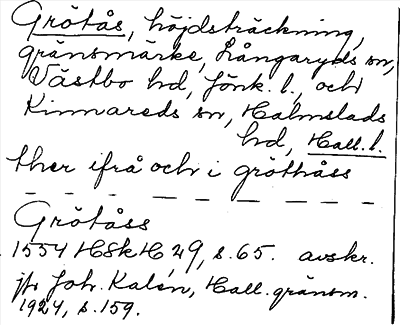 Grötås, höjdsträckning,
gränsmärke, Långaryds sn,
Västbo hd, Jönk. l., och
Kinnareds sn, Halmstads
hd, Hall. l.
ther ifrå och i gröthåss
Grötåss
1554 HSkH 29, s. 65. avskr.
jfr Joh. Kalén, Hall. gränsm.
1924, s. 159.